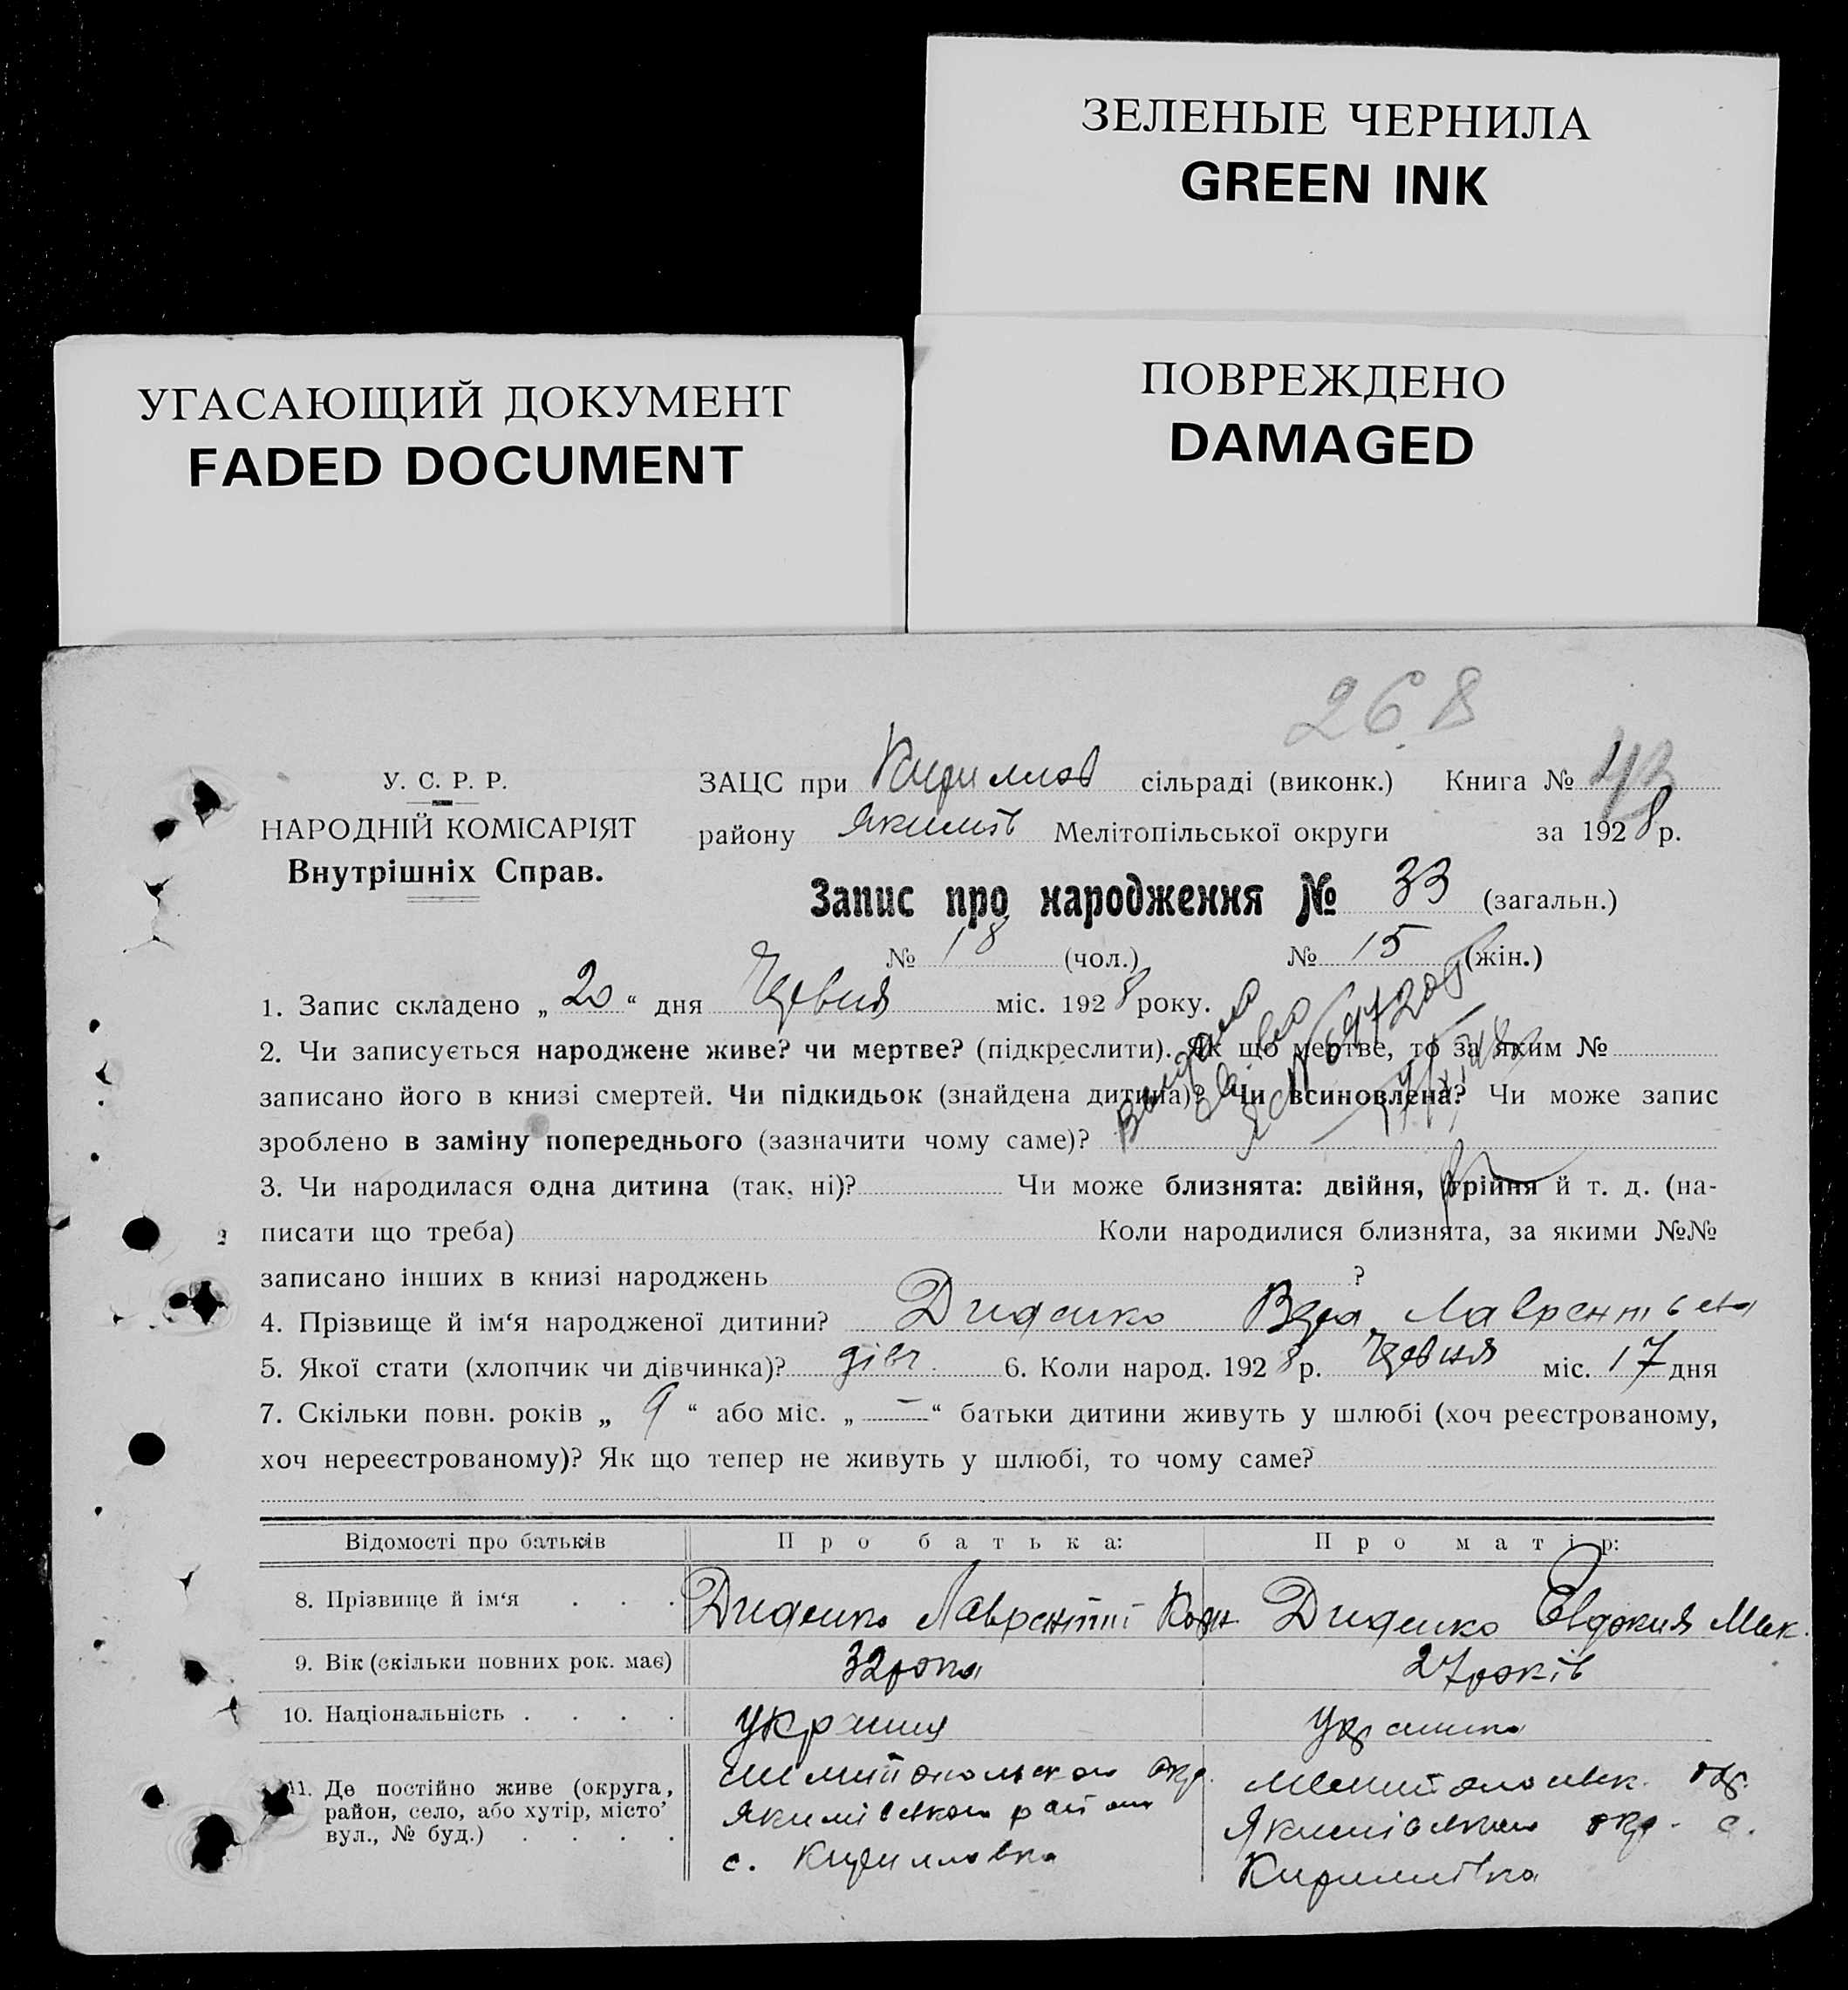 ЗЕЛЕНЫЕ ЧЕРНИЛА
GREEN INK
УГАСАЮЩИЙ ДОКУМЕНТ
FADED DOCUMENT
ПОВРЕЖДЕНО
DAMAGED
268
У. С. Р. Р.
НАРОДНІЙ КОМІСАРІЯТ
Внутрішніх Справ.
ЗАЦС при Кирилив сільраді (виконк.) Книга № 43
району Якимів Мелітопільської округи за 1928 р.
Запис про народження № 33 (загальн.)
№ 18 (чол.) № 15 (жін.)
1. Запис складено „ 20 “ дня Червня міс. 1928 року.
2. Чи записується народжене живе? чи мертве? (підкреслити). Як що мертве, то за яким №
записано його в книзі смертей. Чи підкидьок (знайдена дитина)? Чи всиновлена? Чи може запис
зроблено в заміну попереднього (зазначити чому саме)?
3. Чи народилася одна дитина (так, ні)? Чи може близнята: двійня, трійня й т. д. (на-
писати що треба) Коли народилися близнята, за якими №№
записано інших в книзі народжень ?
4. Прізвище й ім‘я народженої дитини? Диденко Вера Лаврентьева
5. Якої стати (хлопчик чи дівчинка)? дівч. 6. Коли народ. 1928 р. Червня міс. 17 дня
7. Скільки повн. років „ 9 “ або міс. „ — “ батьки дитини живуть у шлюбі (хоч реєстрованому,
хоч нереєстрованому)? Як що тепер не живуть у шлюбі, то чому саме?
Відомості про батьків Про батька: Про матір:
8. Прізвище й ім‘я . . . Диденко Лаврентій Диденко Евдокия Мак.
9. Вік (скільки повних рок. має) 32 рока 27 років
10. Національність . . . . Украинц Украинка
11. Де постійно живе (округа,
район, село, або хутір, місто,
вул., № буд.) . . . .
Якимівського район
с. Кирилловка
Мелитопольск. окр.
Якимівського окр. с.
Кирилівка